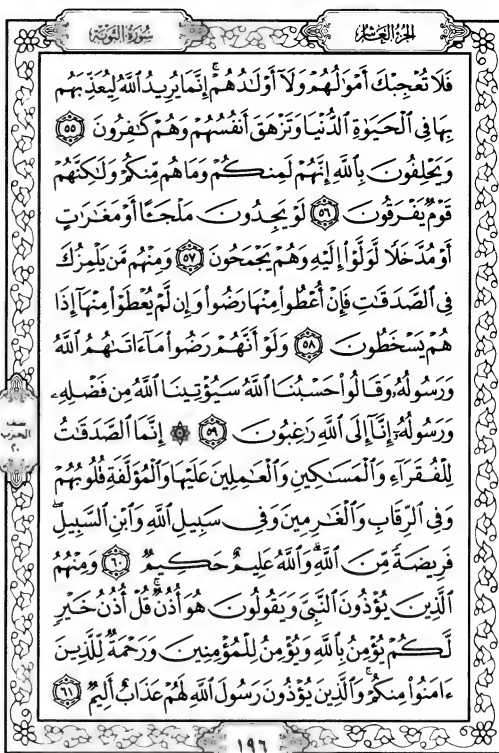 الجزء العاشر
سورة التوبة
فَلَا تُعْجِبْكَ أَمْوَٰلُهُمْ وَلَآ أَوْلَٰدُهُمْ ۚ إِنَّمَا يُرِيدُ ٱللَّهُ لِيُعَذِّبَهُم
بِهَا فِى ٱلْحَيَوٰةِ ٱلدُّنْيَا وَتَزْهَقَ أَنفُسُهُمْ وَهُمْ كَٰفِرُونَ ٥٥
وَيَحْلِفُونَ بِٱللَّهِ إِنَّهُمْ لَمِنكُمْ وَمَا هُم مِّنكُمْ وَلَٰكِنَّهُمْ
قَوْمٌ يَفْرَقُونَ ٥٦ لَوْ يَجِدُونَ مَلْجَـًٔا أَوْ مَغَٰرَٰتٍ
أَوْ مُدَّخَلًا لَّوَلَّوْا۟ إِلَيْهِ وَهُمْ يَجْمَحُونَ ٥٧ وَمِنْهُم مَّن يَلْمِزُكَ
فِى ٱلصَّدَقَٰتِ فَإِنْ أُعْطُوا۟ مِنْهَا رَضُوا۟ وَإِن لَّمْ يُعْطَوْا۟ مِنْهَآ إِذَا
هُمْ يَسْخَطُونَ ٥٨ وَلَوْ أَنَّهُمْ رَضُوا۟ مَآ ءَاتَىٰهُمُ ٱللَّهُ
وَرَسُولُهُۥ وَقَالُوا۟ حَسْبُنَا ٱللَّهُ سَيُؤْتِينَا ٱللَّهُ مِن فَضْلِهِۦ
وَرَسُولُهُۥٓ إِنَّآ إِلَى ٱللَّهِ رَٰغِبُونَ ٥٩ ۞ إِنَّمَا ٱلصَّدَقَٰتُ
لِلْفُقَرَآءِ وَٱلْمَسَٰكِينِ وَٱلْعَٰمِلِينَ عَلَيْهَا وَٱلْمُؤَلَّفَةِ قُلُوبُهُمْ
وَفِى ٱلرِّقَابِ وَٱلْغَٰرِمِينَ وَفِى سَبِيلِ ٱللَّهِ وَٱبْنِ ٱلسَّبِيلِ ۖ
فَرِيضَةً مِّنَ ٱللَّهِ ۗ وَٱللَّهُ عَلِيمٌ حَكِيمٌ ٦٠ وَمِنْهُمُ
ٱلَّذِينَ يُؤْذُونَ ٱلنَّبِىَّ وَيَقُولُونَ هُوَ أُذُنٌ ۚ قُلْ أُذُنُ خَيْرٍ
لَّكُمْ يُؤْمِنُ بِٱللَّهِ وَيُؤْمِنُ لِلْمُؤْمِنِينَ وَرَحْمَةٌ لِّلَّذِينَ
ءَامَنُوا۟ مِنكُمْ ۚ وَٱلَّذِينَ يُؤْذُونَ رَسُولَ ٱللَّهِ لَهُمْ عَذَابٌ أَلِيمٌ ٦١
نصف
الحزب
٢٠
١٩٦